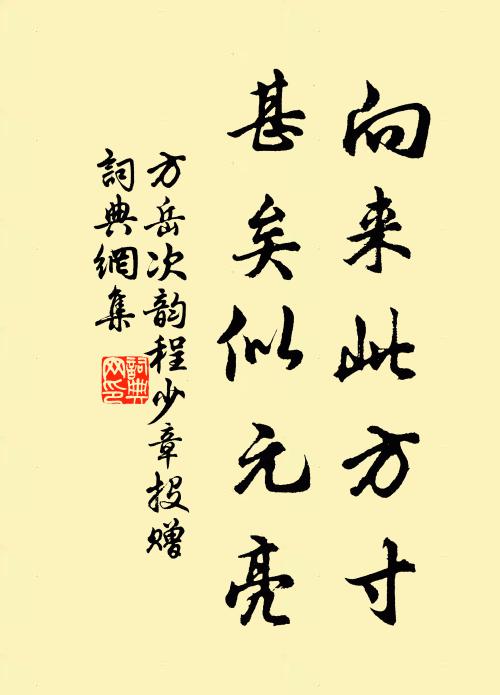 向来此方寸
甚矣似元亮
方岳次韵程少章投赠
詞典網集
詞典网印